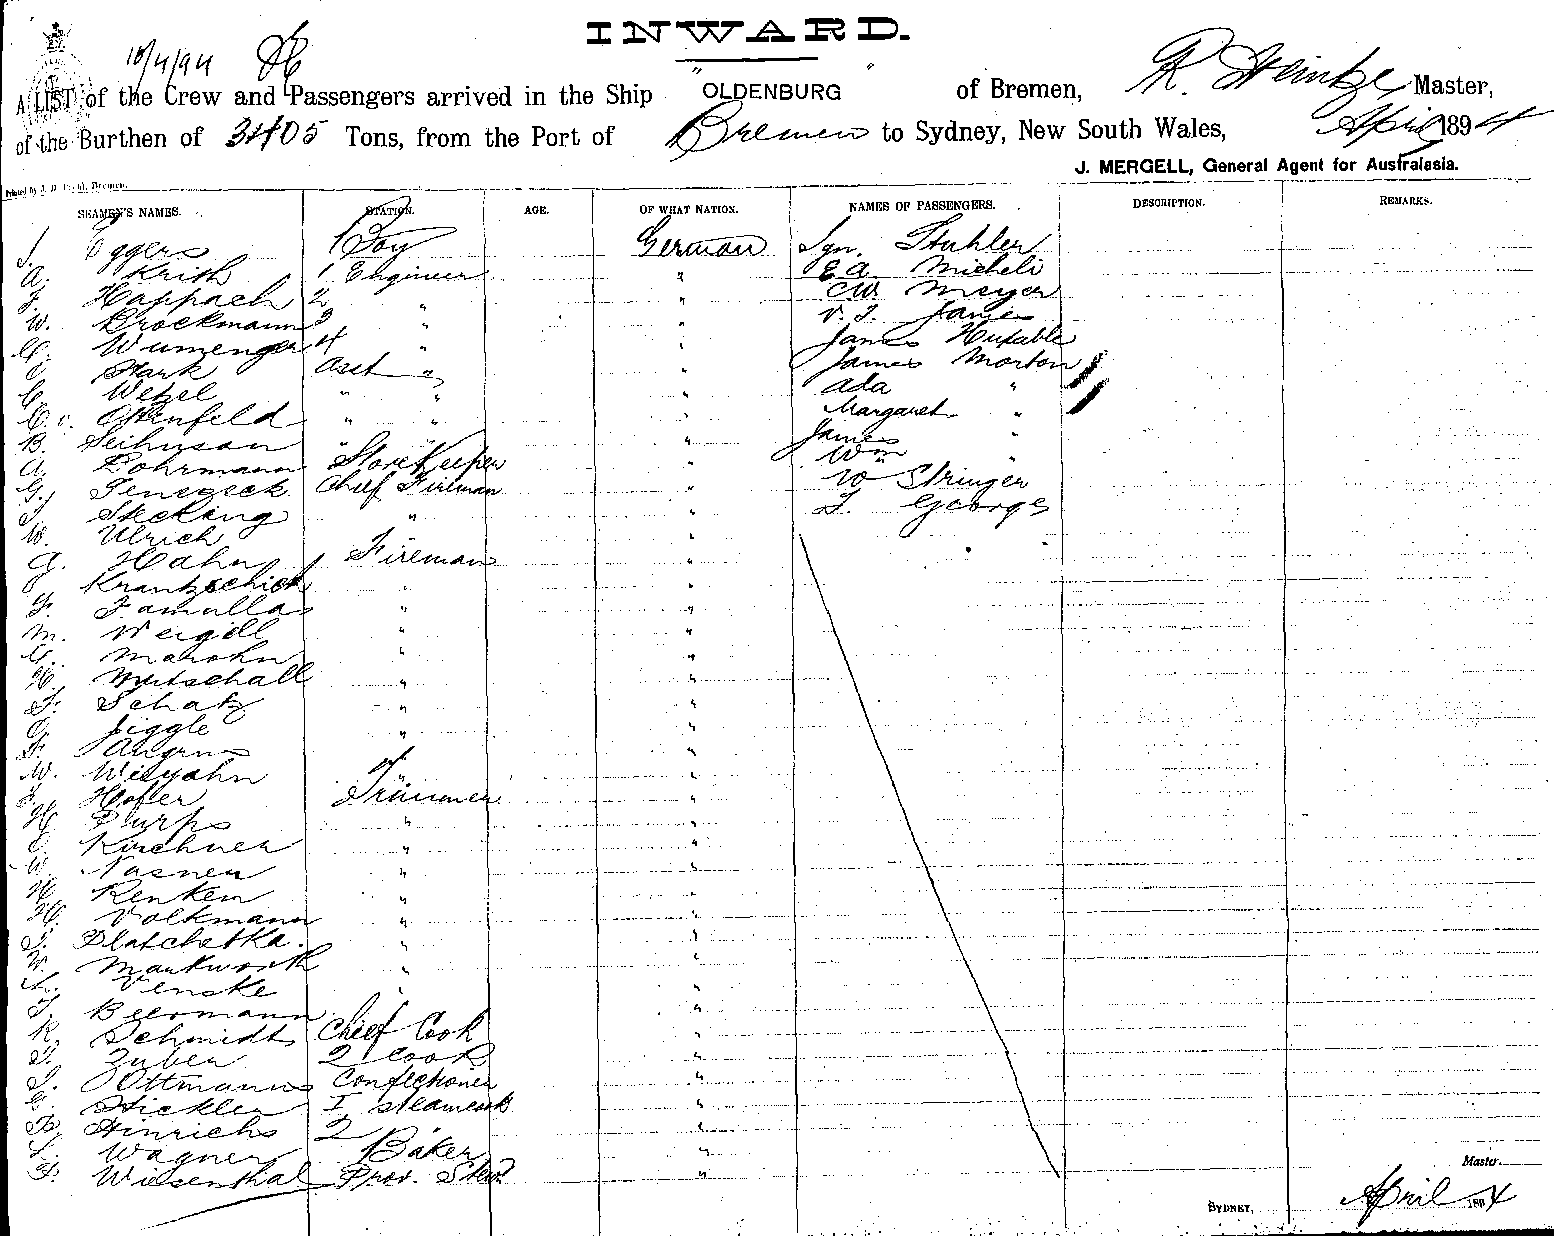 INWARD.
10/4/94
A LIST of the Crew and Passengers arrived in the Ship "OLDENBURG" of Bremen, R. Heintze Master,
of the Burthen of 3405 Tons, from the Port of Bremen to Sydney, New South Wales, April 1894
J. MERGELL, General Agent for Australasia.
SEAMEN'S NAMES. STATION. AGE. OF WHAT NATION. NAMES OF PASSENGERS. DESCRIPTION. REMARKS.
Eggers 1 Boy German Sgn. Stuhler
A. Krith 1 Engineer " E A. Micheli
F. Happach 2 " " CW. Meyer
W. Brockmann 3 " " V. J. James
C. Wumenger 4 " " James Huxable
Stark Asst " James Morton
C. Wetzel " " Ada "
C. v. Ostenfeld " " " Margaret "
B. " " " James "
A. Bohrmann StoreKeeper " Wm "
G. Chief Fireman " W Stringer
Steking " " F. George
W. Ulrich "
A. Hahn Fireman "
Krantzschick " "
F. Famulla " "
M. Weigell " "
G. Marohn " "
H. Mutschall " "
F. Schatz " "
Jiggle " "
F. "
W. Wisyahn " "
F. Hofer Trimmer "
H. Purps " "
Kirchner " "
W. Nasner " "
H. Renken " "
H. Volkmann " "
J. Platchetka. " "
W. Markworth " "
Venske " "
J. Beermann "
R. Schmidt Chief Cook "
J. Zuber 2 Cook "
Ottmann Confectioner "
Stickler I Steamcook "
Hinrichs 2 " "
L. Wagner Baker "
F. Wiesenthal Prov. Stew "
Master.
SYDNEY, April 1894